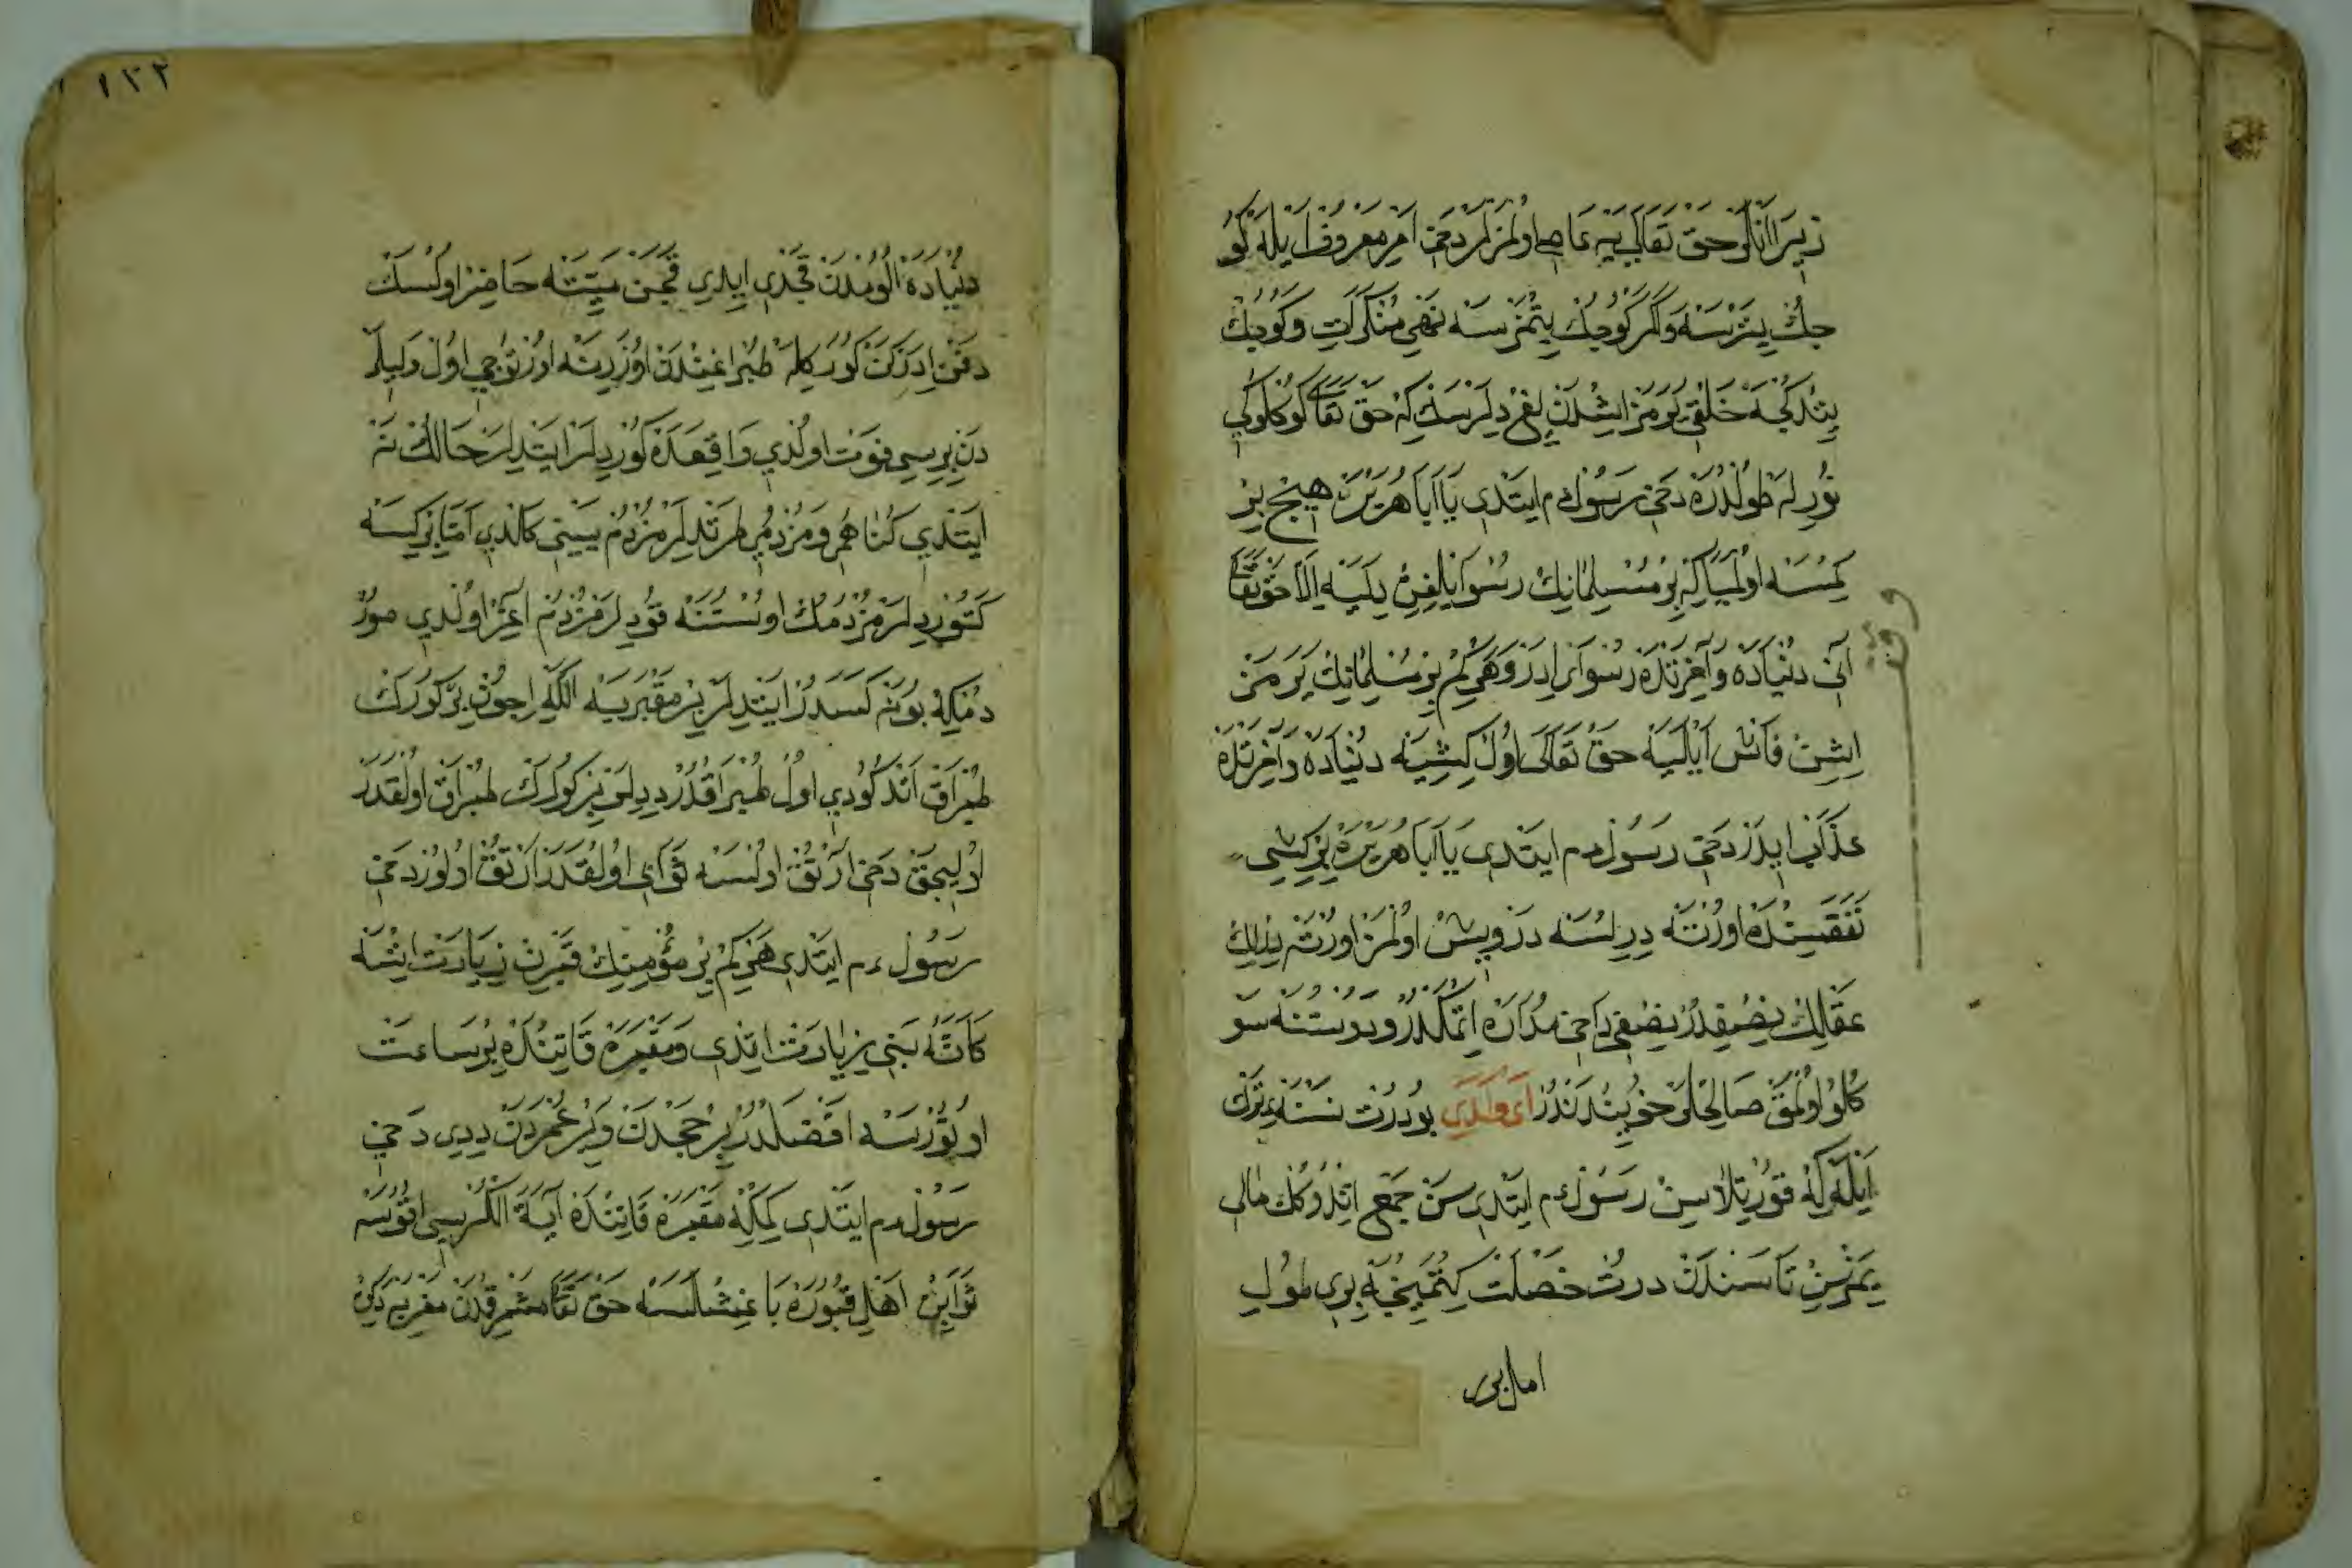 زيرا انلر حق تعالى يه عاصى اولمزلر دخى امر معروف ايله كو
جك يترسه و اكر كوجك يتمزسه نهى منكرات و كوجك
يتدكجه خلقى يرمز ايشدن يغ ديلرسك كه حق تعالى كوكلوكى
نوريله طولدره دخى رسول عم ايتدى يا ابا هريره هيچ بر
كمسنه اولميا كه بر مسلمانك رسوايلغن ديليه الا حق تعالى
انى دنياده و آخرتده رسواى ايدر و هر كم بر مسلمانك يرمز
ايشن فاش ايليه حق تعالى اول كشيه دنياده و آخرتده
عذاب ايدر دخى رسول عم ايتدى يا ابا هريره بر كشى
نفقسنده اورته درلسه درويش اولمز اورته درلك
عقلك نصفيدر نصفى داخى مدارا اتمكلدر و دوستنه سو
كلو اولمق صالحلر خوينددندر اى ولدى بو درت نسنه ترك
ايله كه قورتلاسن رسول عم ايتدى سن جمع اتدوكك مالى
يمزسن تا سندن درت خصلت كتمينجه برى طول
امل برى
١٣٢
دنياده الومدن قچدى ايدى قچن ميته حاضر اولسك
دفن ادركن كوركله طبراغندن اوزرينه اورتوجى اول وليلر
دن بريسى فوت اولدى واقعده كورديلر ايتديلر حالك نه
ايتدى كناهم و مزدم طرتديلر مزدم يينى كلدى اما بر كسه
كتورديلر مزدمك اوستنه قوديلر مزدم اغر اولدى صور
دمكه بو نه كسه در ايتديلر بر مقبريه الله اجون بر كورك
طبراق اتدكودى اول طبراقدر ديديلر بر كورك طبراق اولقدر
اوليجق دخى ارتق اولسه ثوابى اولقدر ارتق اولور دخى
رسول عم ايتدى هر كم بر مؤمنك قبرن زيارت ايتسه
كانه بنى زيارت ايتدى و مقبره قاتنده بر ساعت
اوتورسه افضلدر بر حجدن و بر عمردن ديدى دخى
رسول عم ايتدى كمكه مقبره قاتنده آية الكرسى اقوسه
ثوابن اهل قبوره باغشلسه حق تعالى مشرقدن مغربه دكن